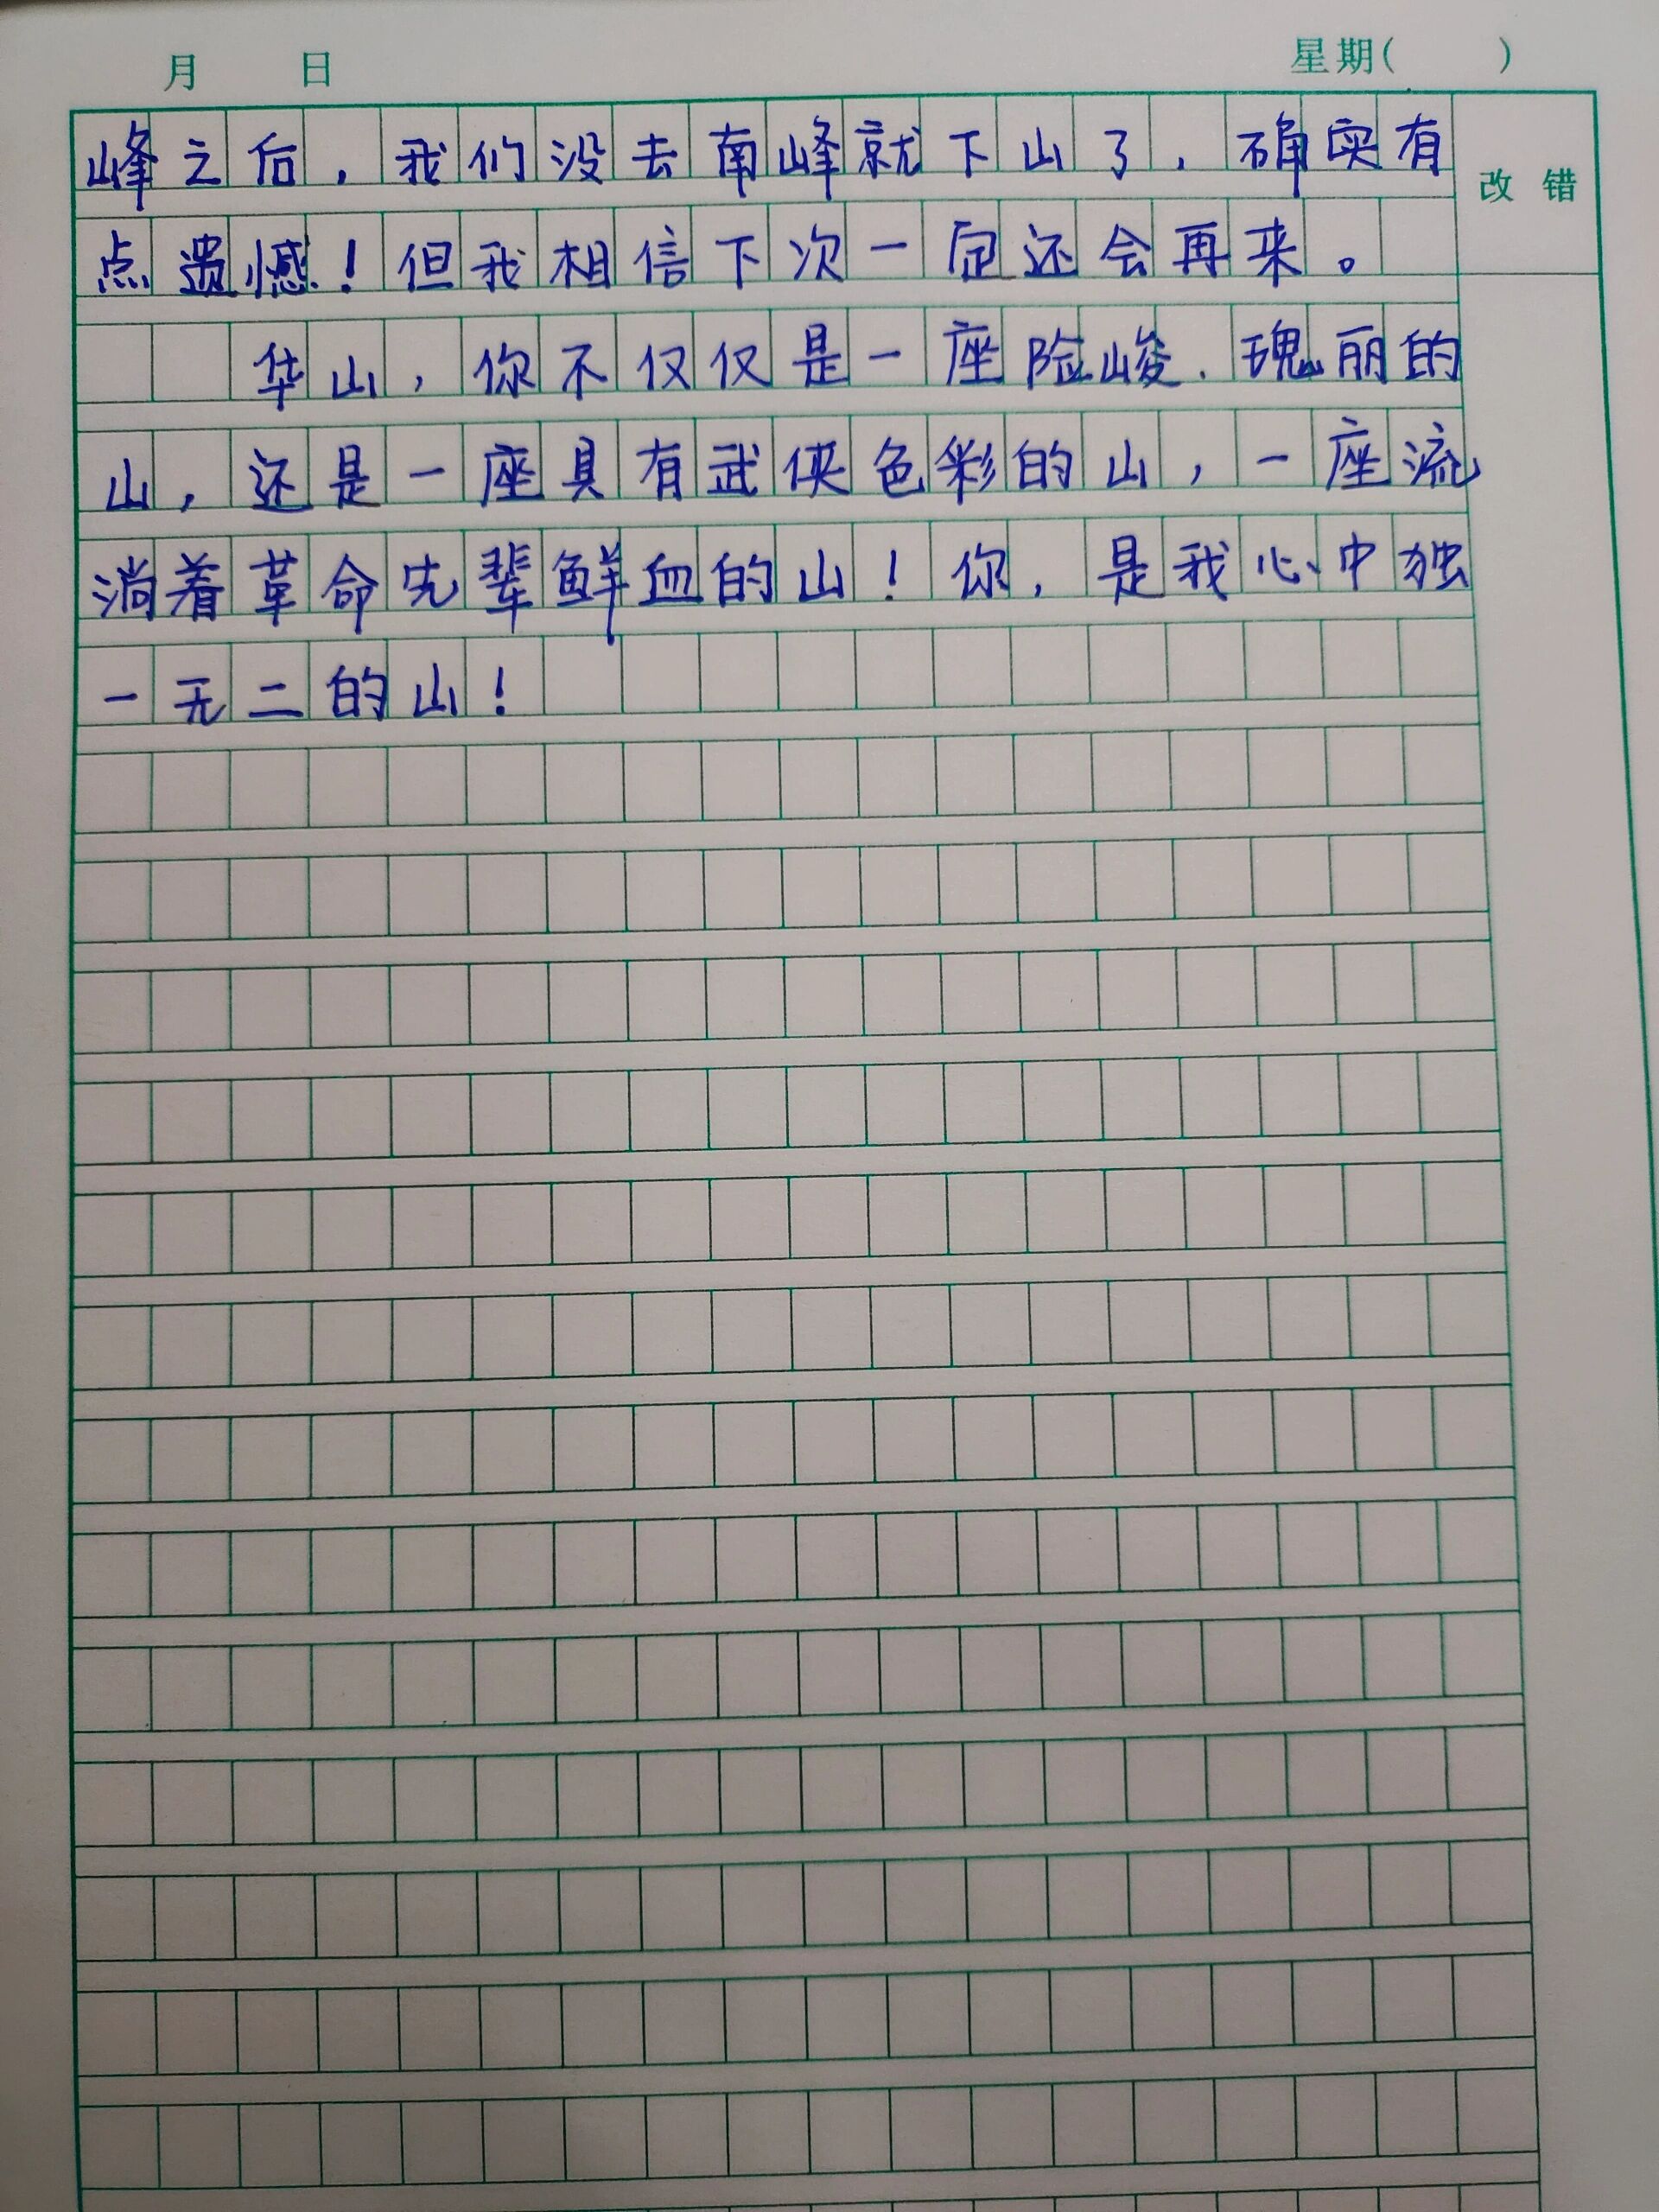 月 日 星期( )
峰之后，我们没去南峰就下山了，确实有
改 错
点遗憾！但我相信下次一定还会再来。
华山，你不仅仅是一座险峻、瑰丽的
山，还是一座具有武侠色彩的山，一座流
淌着革命先辈鲜血的山！你，是我心中独
一无二的山！